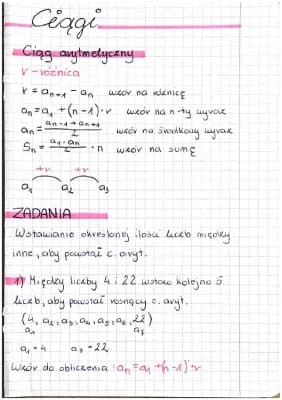 Ciągi
Ciąg arytmetyczny
r - różnica
r = aₙ₊₁ - aₙ wzór na różnicę
aₙ = a₁ + (n-1)·r wzór na n-ty wyraz
aₙ = (aₙ₋₁ + aₙ₊₁)/2 wzór na środkowy wyraz
Sₙ = (a₁ - aₙ)/2 · n wzór na sumę
+r +r
a₁ a₂ a₃
ZADANIA
Wstawianie określonej ilości liczb między
inne, aby powstał c. aryt.
1) Między liczby 4 i 22 wstaw kolejno 5
liczb, aby powstał rosnący c. aryt.
(4, a₂, a₃, a₄, a₅, a₆, 22)
a₁ a₇
a₁ = 4 a₇ = 22
Wzór do obliczenia: aₙ = a₁ + (n-1)·r